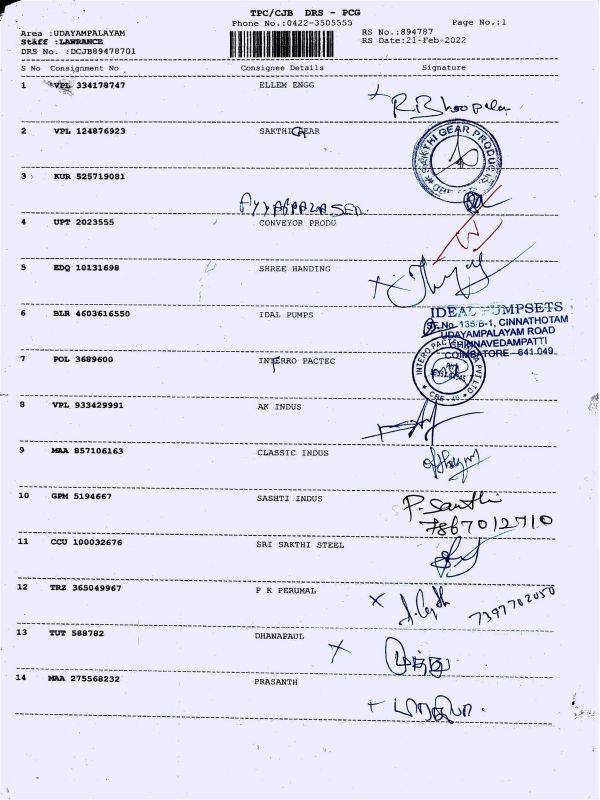 TPC/CJB DRS - PCG
Phone No.:0422-3505555 Page No.:1
Area :UDAYAMPALAYAM RS No.:894787
Staff :LAWRANCE RS Date:21-Feb-2022
DRS No. :DCJB89478701
S No Consignment No Consignee Details Signature
1 VPL 334178747 ELLEM ENGG
R.Bhoopala
2 VPL 124876923 SAKTHI GEAR
SAKTHI GEAR PRODUCTS
3 KUR 525719081
4 UPT 2023555 CONVEYOR PRODU
5 EDQ 10131698 SHREE HANDING
6 BLR 4603616550 IDAL PUMPS
IDEAL PUMPSETS
SF.No-135/B-1, CINNATHOTAM
UDAYAMPALAYAM ROAD
CHINNAVEDAMPATTI
COIMBATORE - 641 049
7 POL 3689600 INTERRO PACTEC
8 VPL 933429991 AK INDUS
9 MAA 857106163 CLASSIC INDUS
10 GPM 5194667 SASHTI INDUS
P. Santhi
7867012710
11 CCU 100032676 SRI SAKTHI STEEL
12 TRZ 365049967 P K PERUMAL
7397702050
13 TUT 588782 DHANAPAUL
முத்து
14 MAA 275568232 PRASANTH